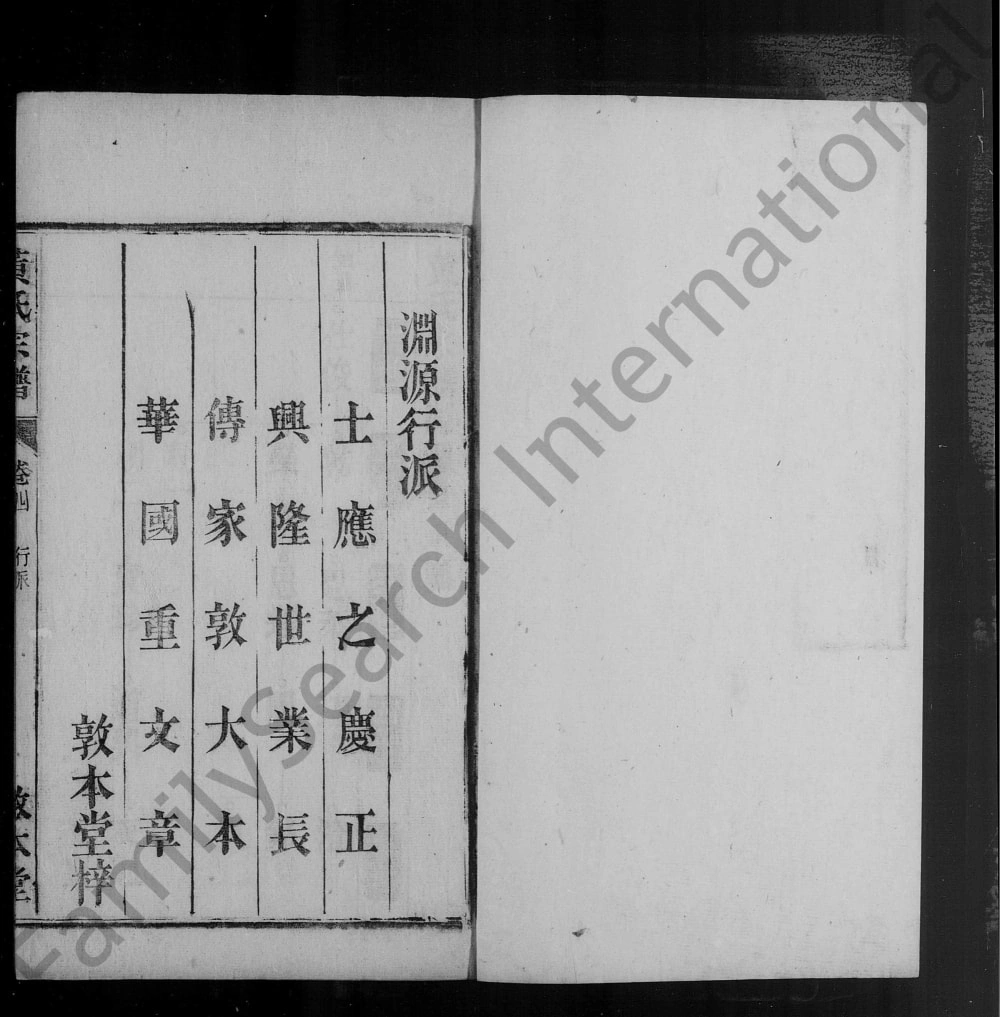 淵源行派
士應之慶正
興隆世業長
傳家敦大本
華國重文章
敦本堂梓
黃氏宗譜
卷四
行派
敦本堂
FamilySearch International